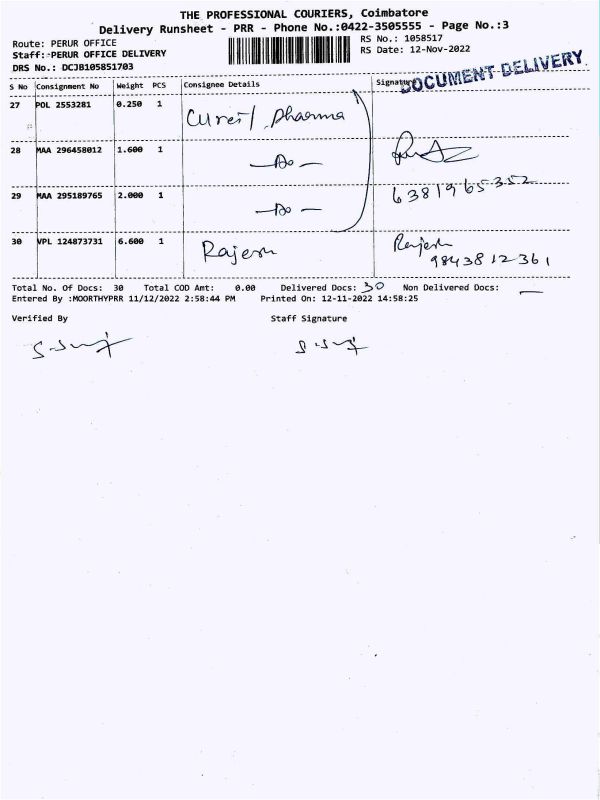 THE PROFESSIONAL COURIERS, Coimbatore
Delivery Runsheet - PRR - Phone No.:0422-3505555 - Page No.:3
Route: PERUR OFFICE
RS No.: 1058517
Staff: PERUR OFFICE DELIVERY
RS Date: 12-Nov-2022
DRS No.: DCJB105851703
DOCUMENT DELIVERY
S No Consignment No Weight PCS Consignee Details Signature
27 POL 2553281 0.250 1 Pharma
28 MAA 296458012 1.600 1 - Do -
29 MAA 295189765 2.000 1 - Do - 6381965352
30 VPL 124873731 6.600 1 Rajesh Rajesh
9843812361
Total No. Of Docs: 30 Total COD Amt: 0.00 Delivered Docs: 30 Non Delivered Docs: —
Entered By :MOORTHYPRR 11/12/2022 2:58:44 PM Printed On: 12-11-2022 14:58:25
Verified By Staff Signature